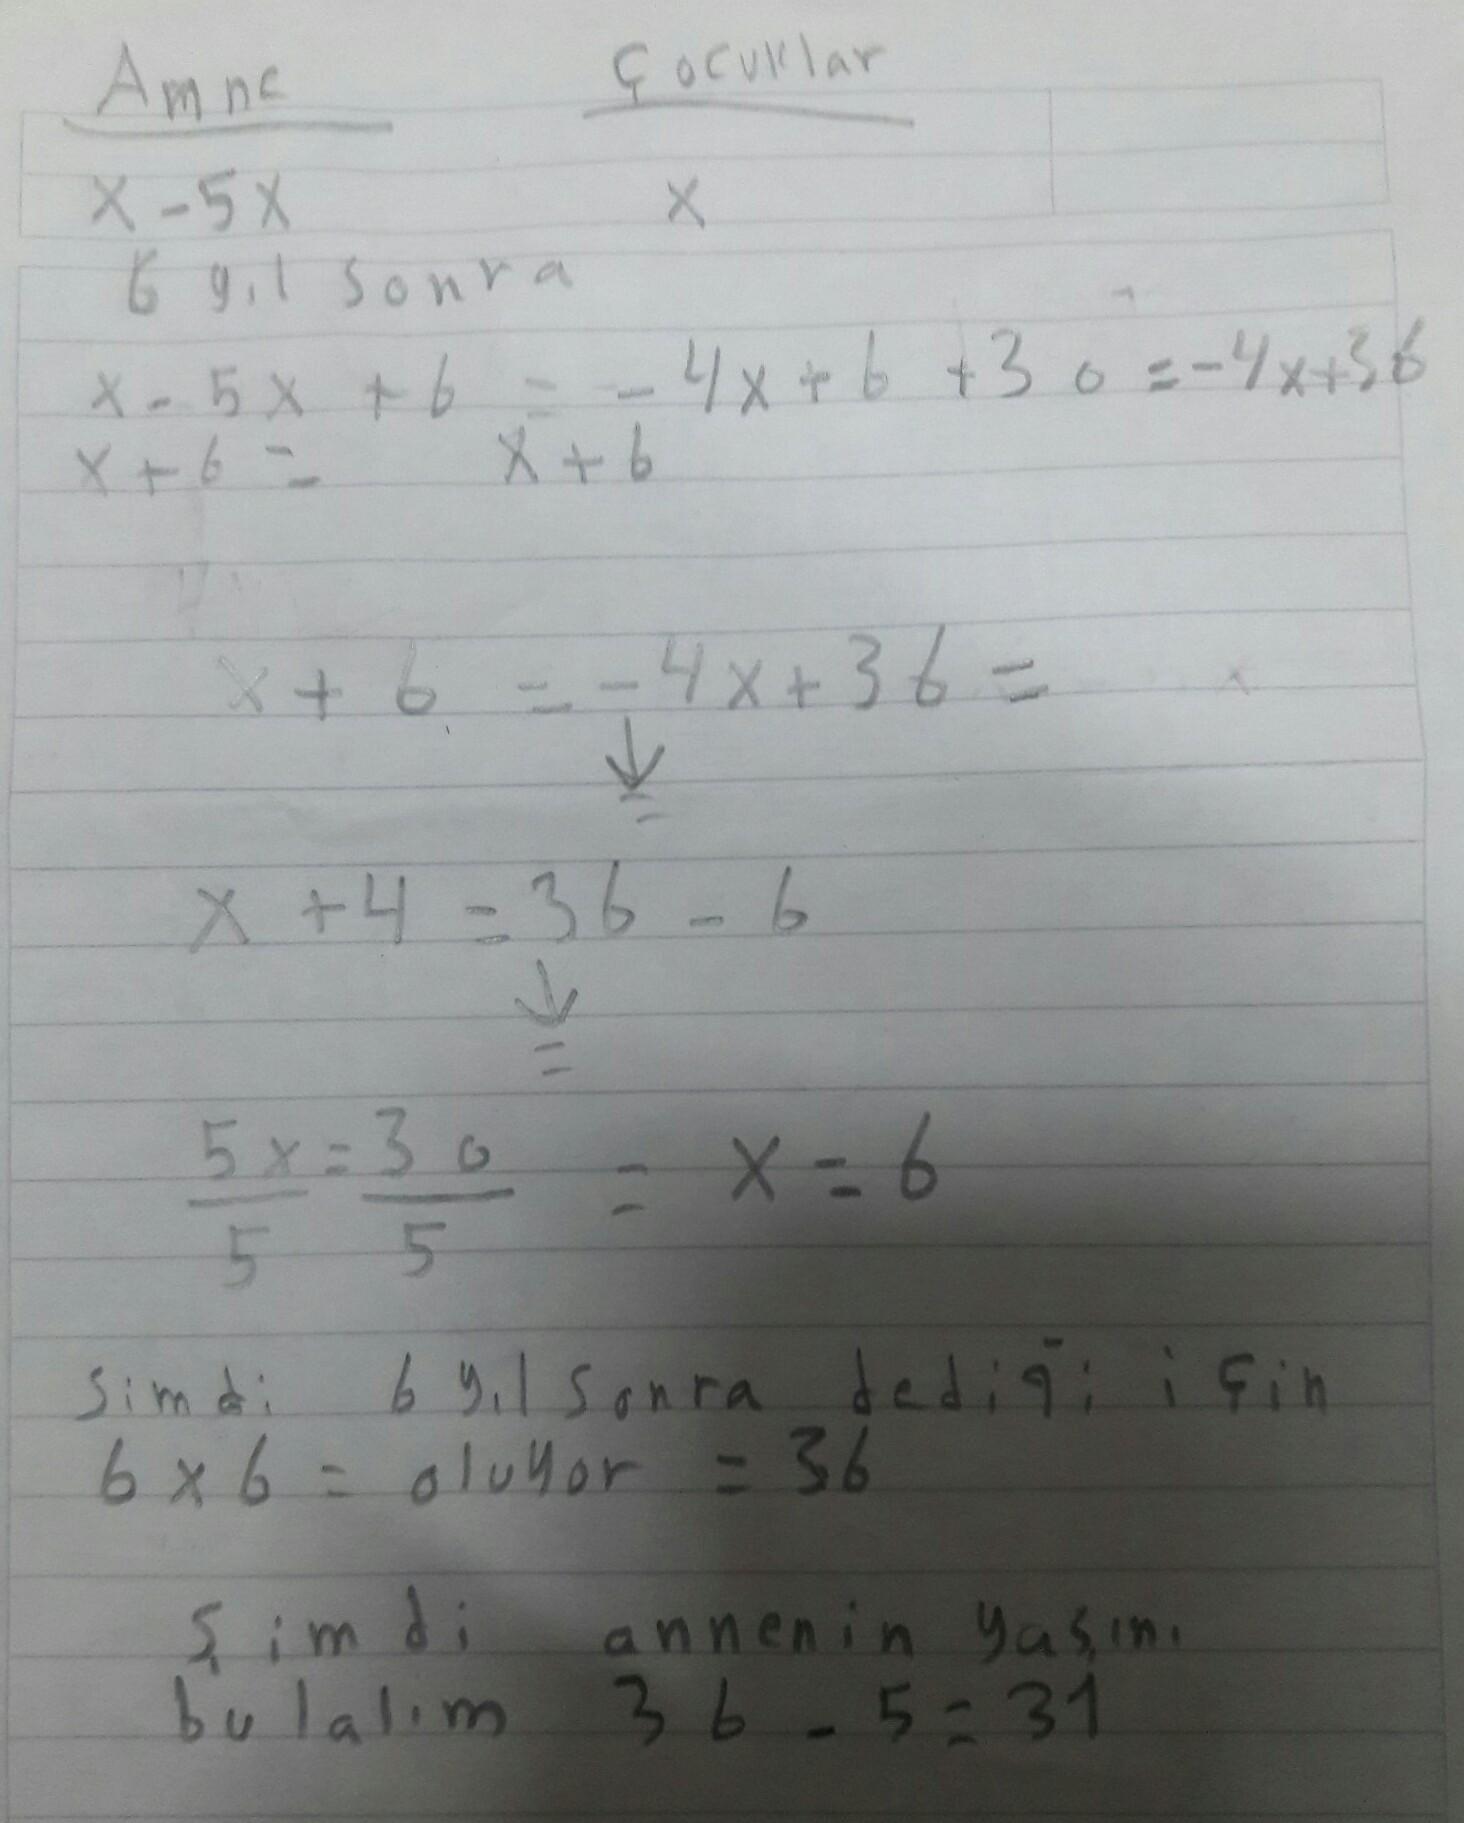 Amne Çocuklar
x - 5x x
6 yıl sonra
x - 5x + 6 = - 4x + 6 + 30 = -4x+36
x + 6 = x + 6
x + 6 = - 4x + 36 =
↓
=
x + 4 = 36 - 6
↓
=
5x = 30 = x = 6
5 5
simdi 6 yıl sonra dediği için
6 x 6 = oluyor = 36
Şimdi annenin yaşını
bulalım 36 - 5 = 31